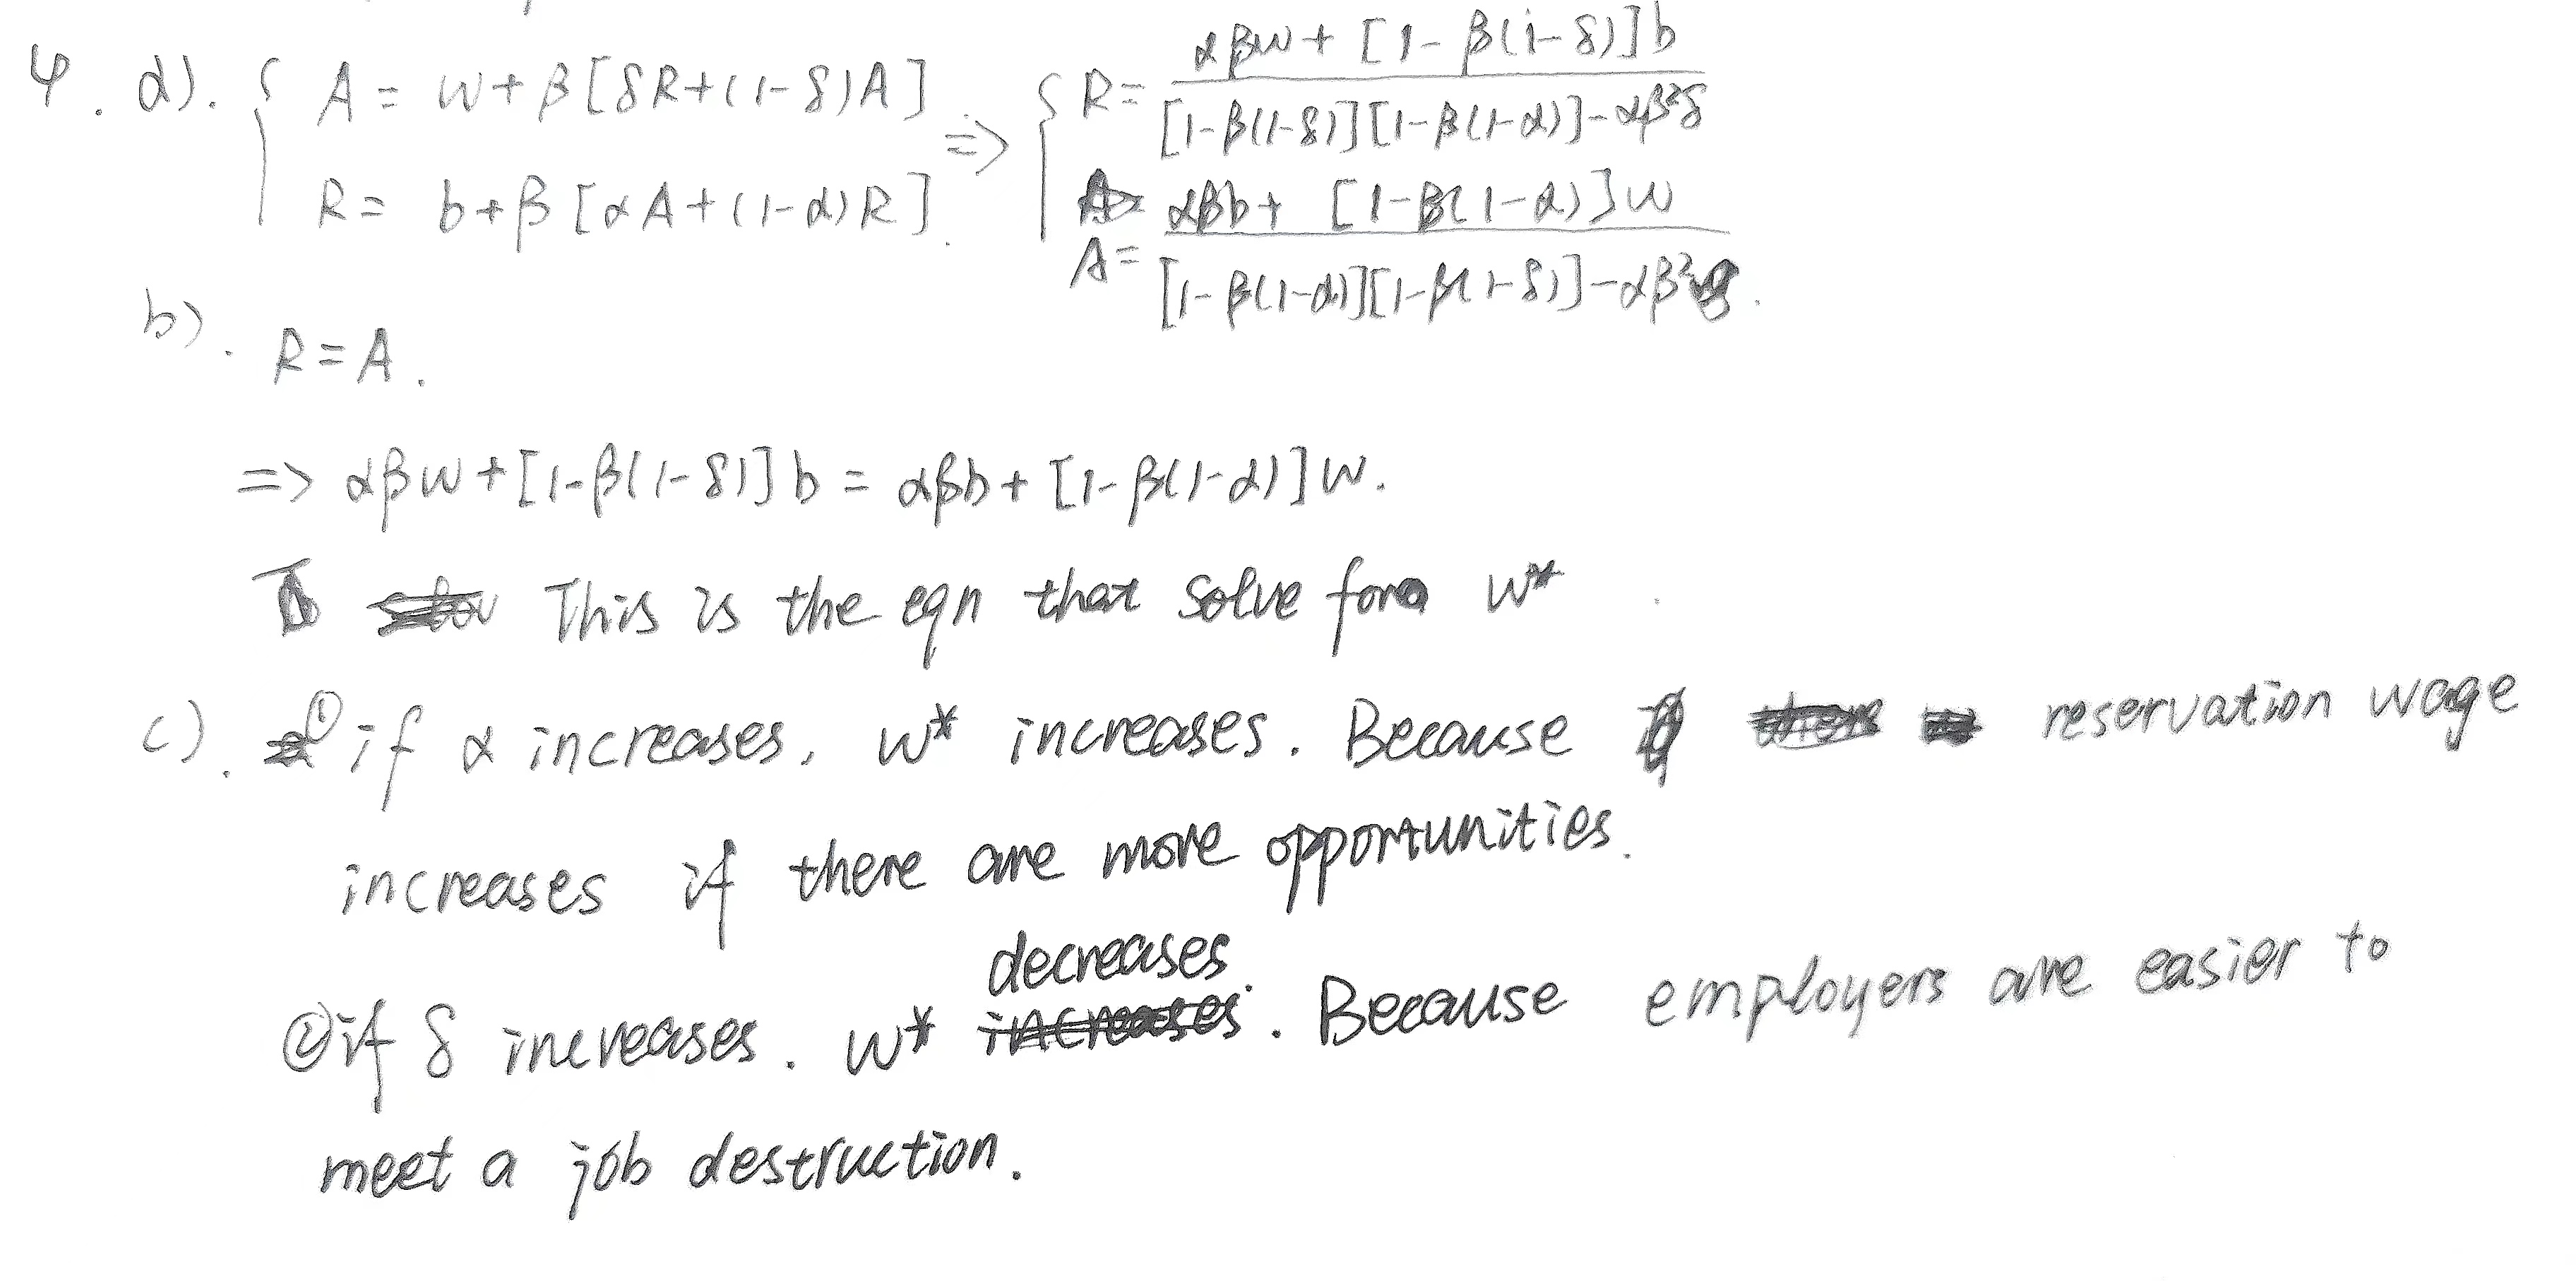 4. a). { A = w + β[δR+(1-δ)A] => { R = αβw + [1-β(1-δ)]b / [1-β(1-δ)][1-β(1-α)]-αβ²δ
R = b+β[αA+(1-α)R]. A = αβb + [1-β(1-α)]w / [1-β(1-α)][1-β(1-δ)]-αβ²δ.
b). R=A.
=> αβw+[1-β(1-δ)]b = αβb+[1-β(1-α)]w.
This is the eqn that solve for w*.
c). ① if α increases, w* increases. Because reservation wage
increases if there are more opportunities.
② if δ increases. w* decreases. Because employers are easier to
meet a job destruction.